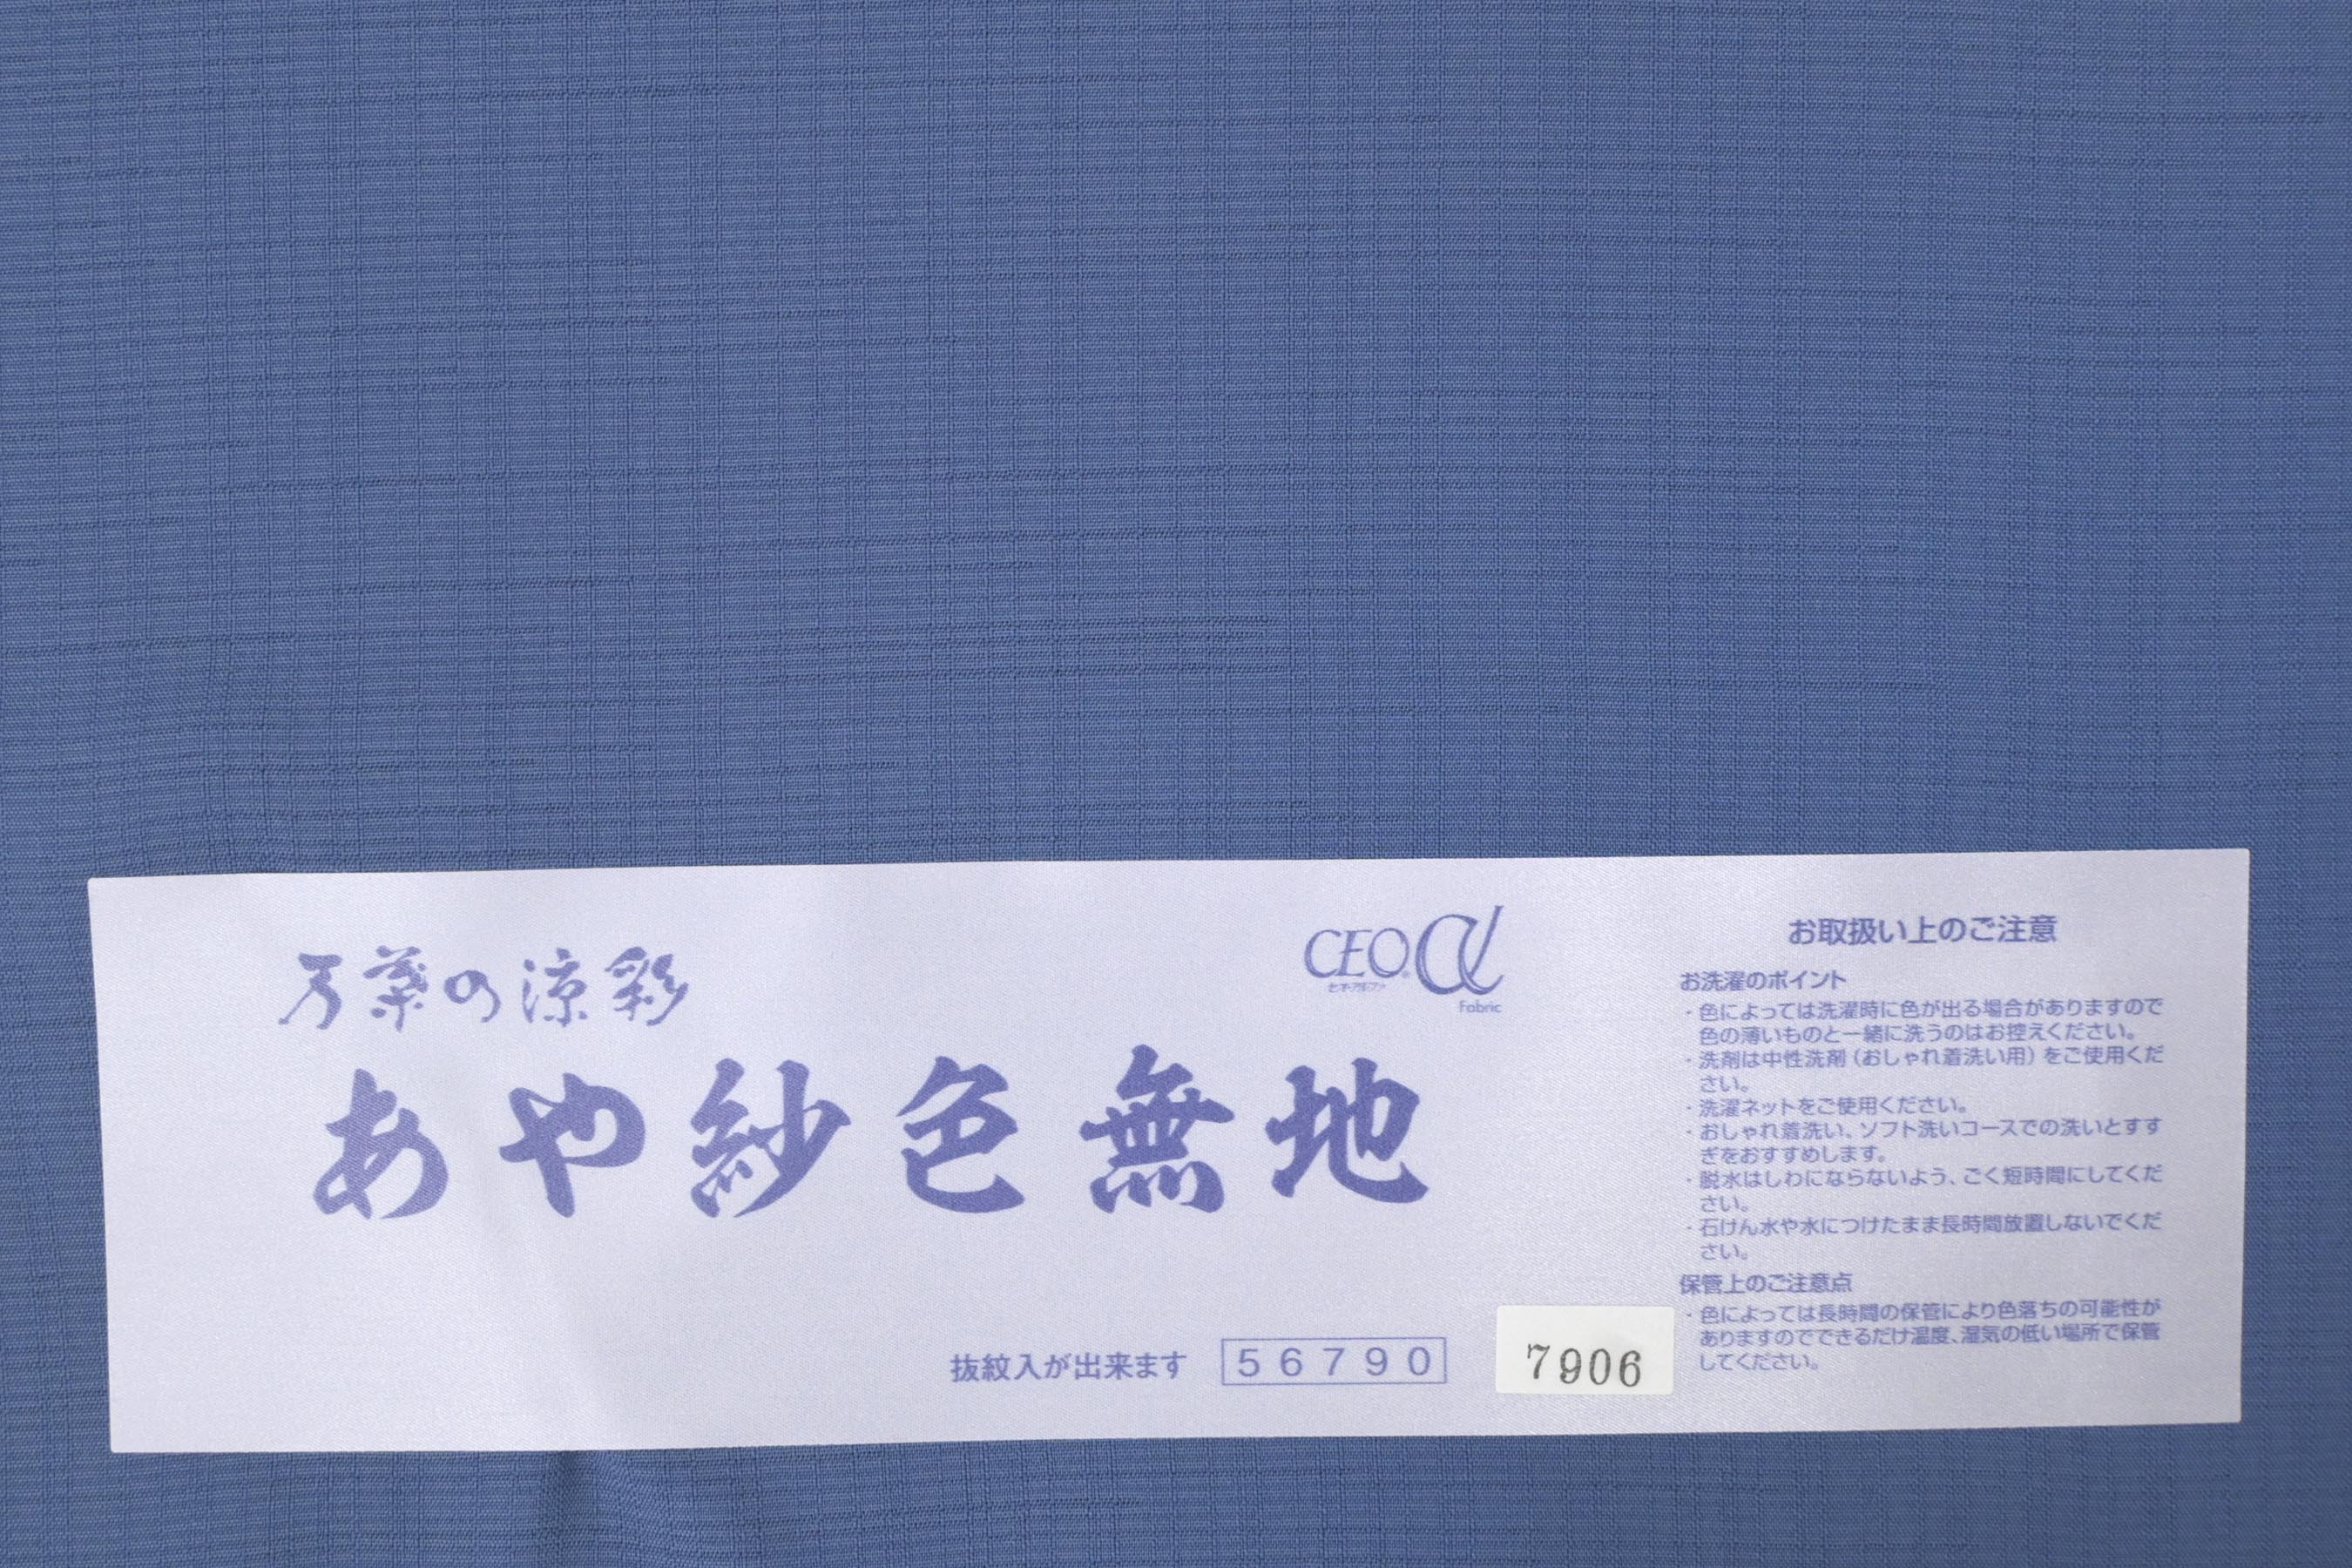 万葉の涼彩
あや紗色無地
CEO® α
セオ・アルファ
Fabric
抜紋入が出来ます
56790
7906
お取扱い上のご注意
お洗濯のポイント
・色によっては洗濯時に色が出る場合がありますので
色の薄いものと一緒に洗うのはお控えください。
・洗剤は中性洗剤（おしゃれ着洗い用）をご使用くだ
さい。
・洗濯ネットをご使用ください。
・おしゃれ着洗い、ソフト洗いコースでの洗いとすす
ぎをおすすめします。
・脱水はしわにならないよう、ごく短時間にしてくだ
さい。
・石けん水や水につけたまま長時間放置しないでくだ
さい。
保管上のご注意点
・色によっては長時間の保管により色落ちの可能性が
ありますのでできるだけ温度、湿気の低い場所で保管
してください。